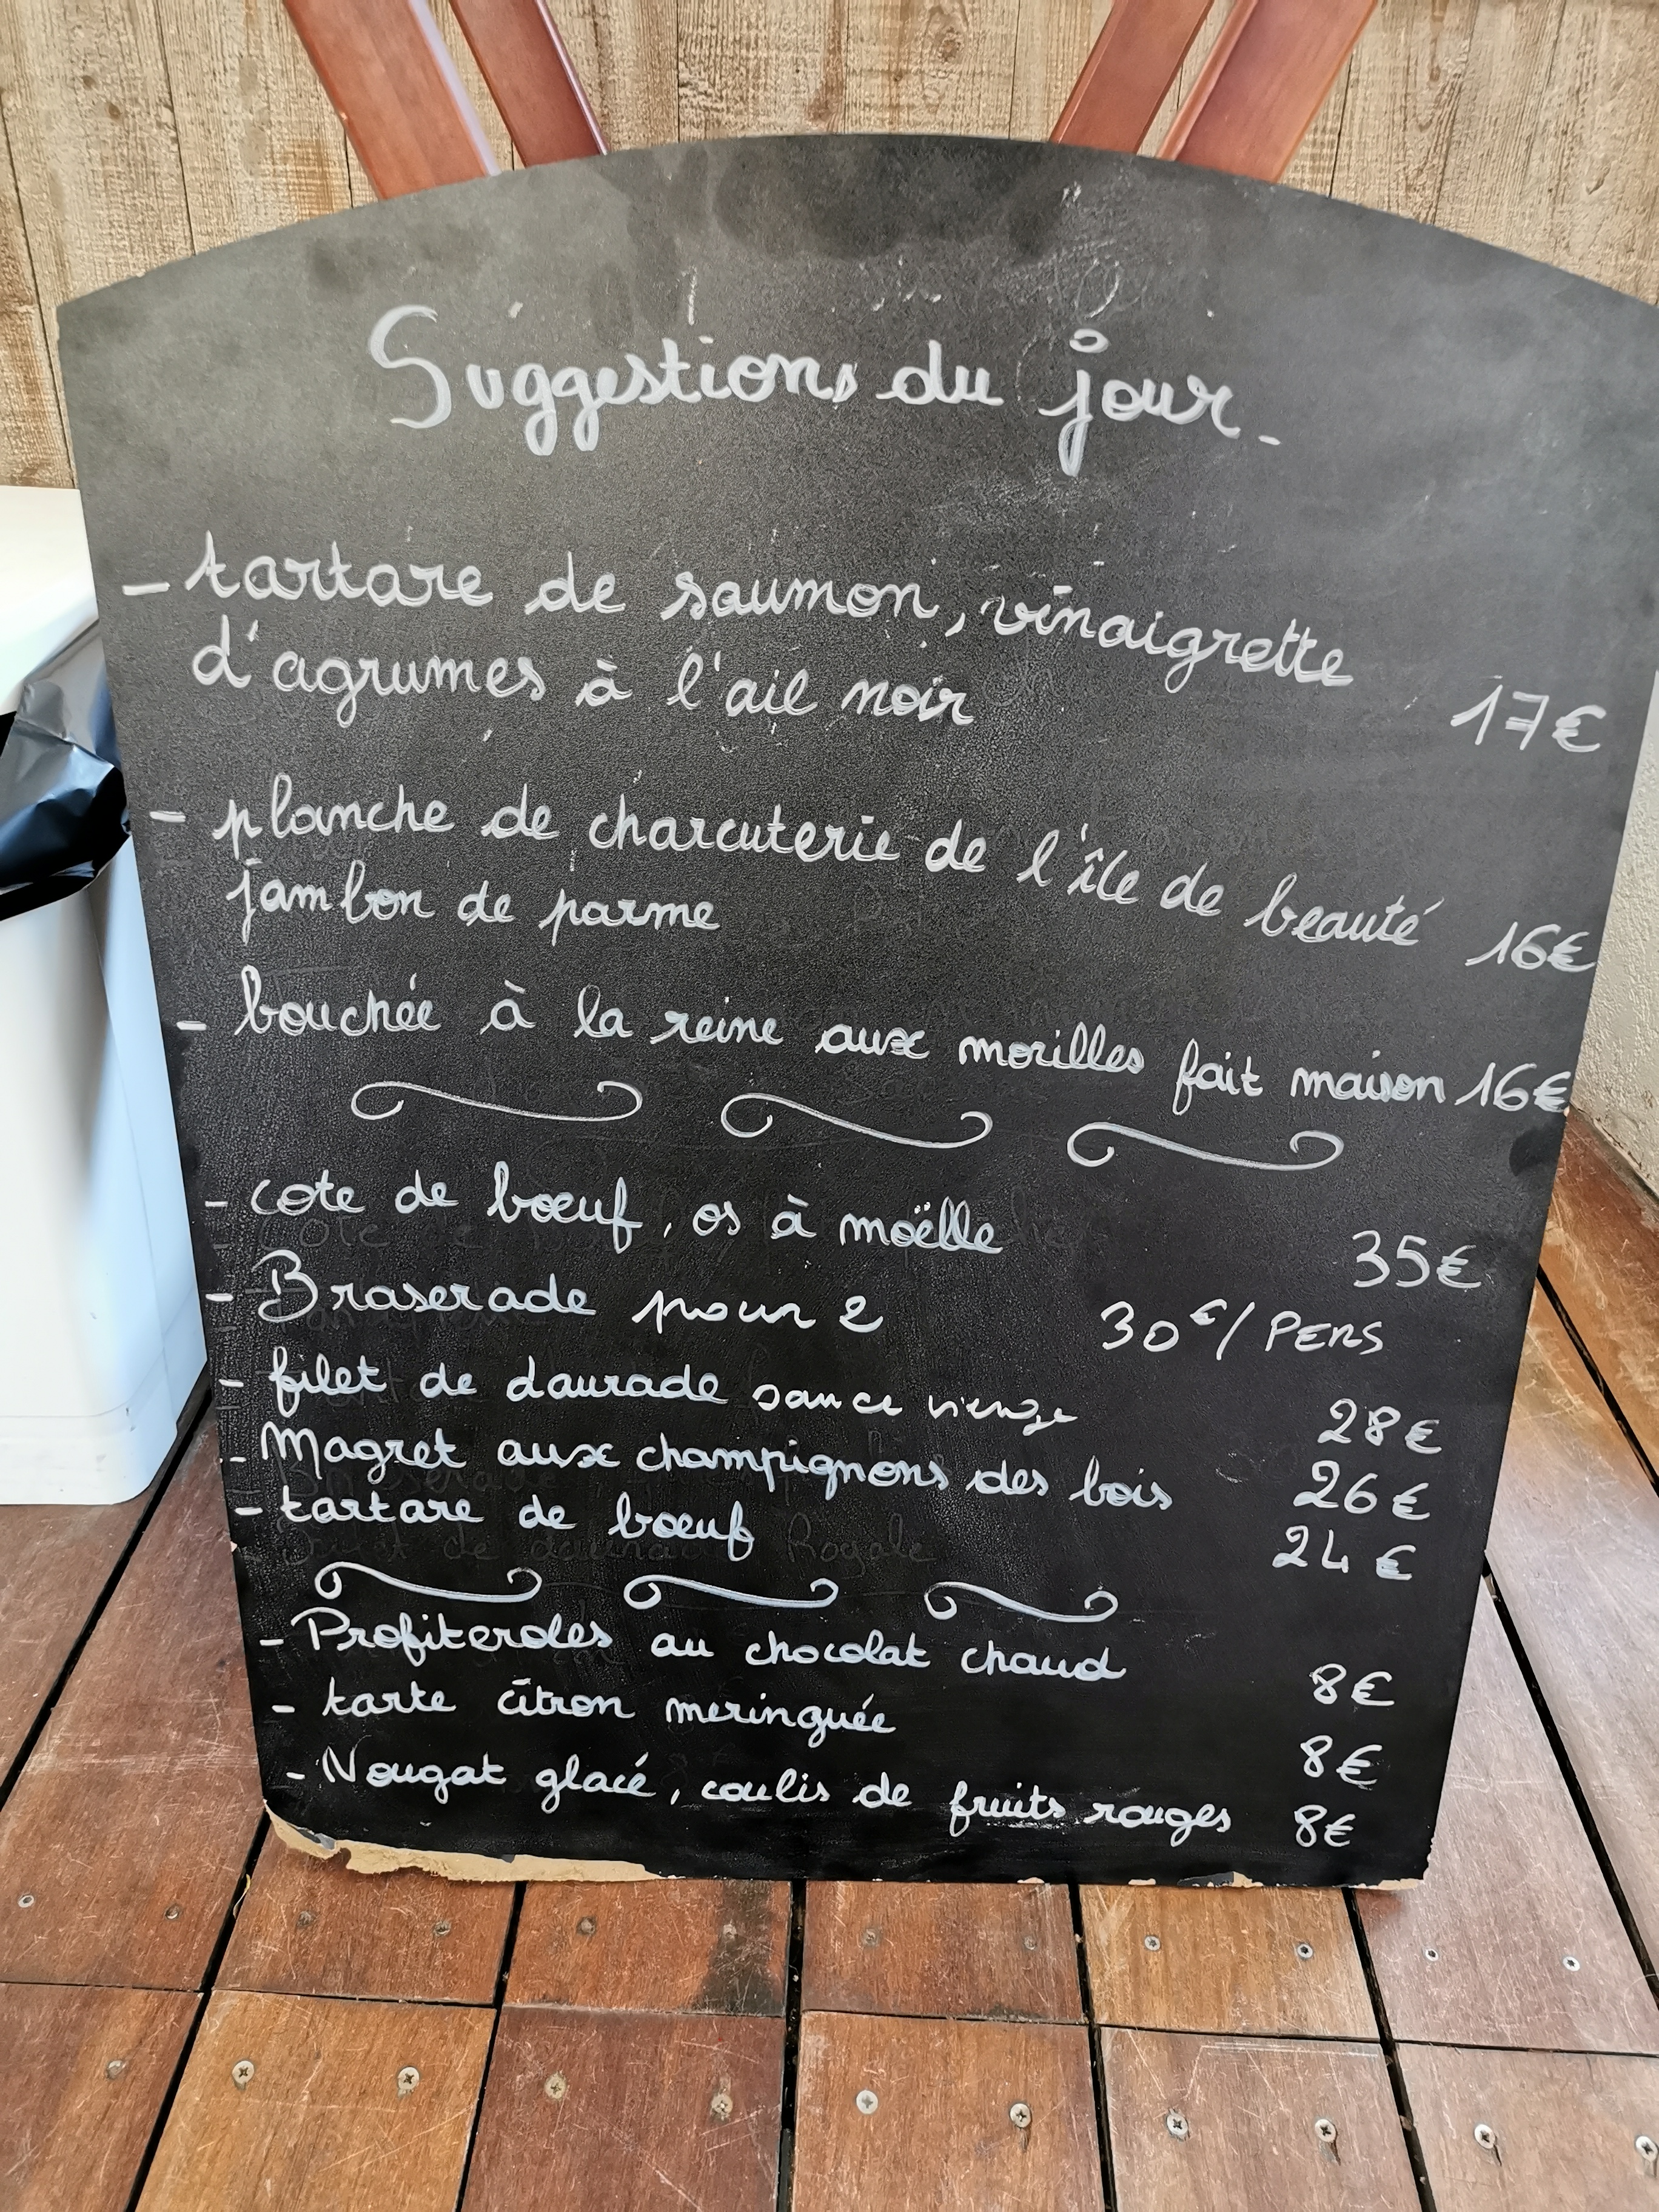 Suggestions du jour.
- tartare de saumon, vinaigrette
d'agrumes à l'ail noir 17€
- planche de charcuterie de l'île de beauté
jambon de parme 16€
- bouchée à la reine aux morilles fait maison 16€
- cote de bœuf, os à moëlle 35€
- Braserade pour 2 30€/PERS
- filet de daurade sauce vierge 28€
- Magret aux champignons des bois 26€
- tartare de bœuf 24€
- Profiteroles au chocolat chaud 8€
- tarte citron meringuée 8€
- Nougat glacé, coulis de fruits rouges 8€